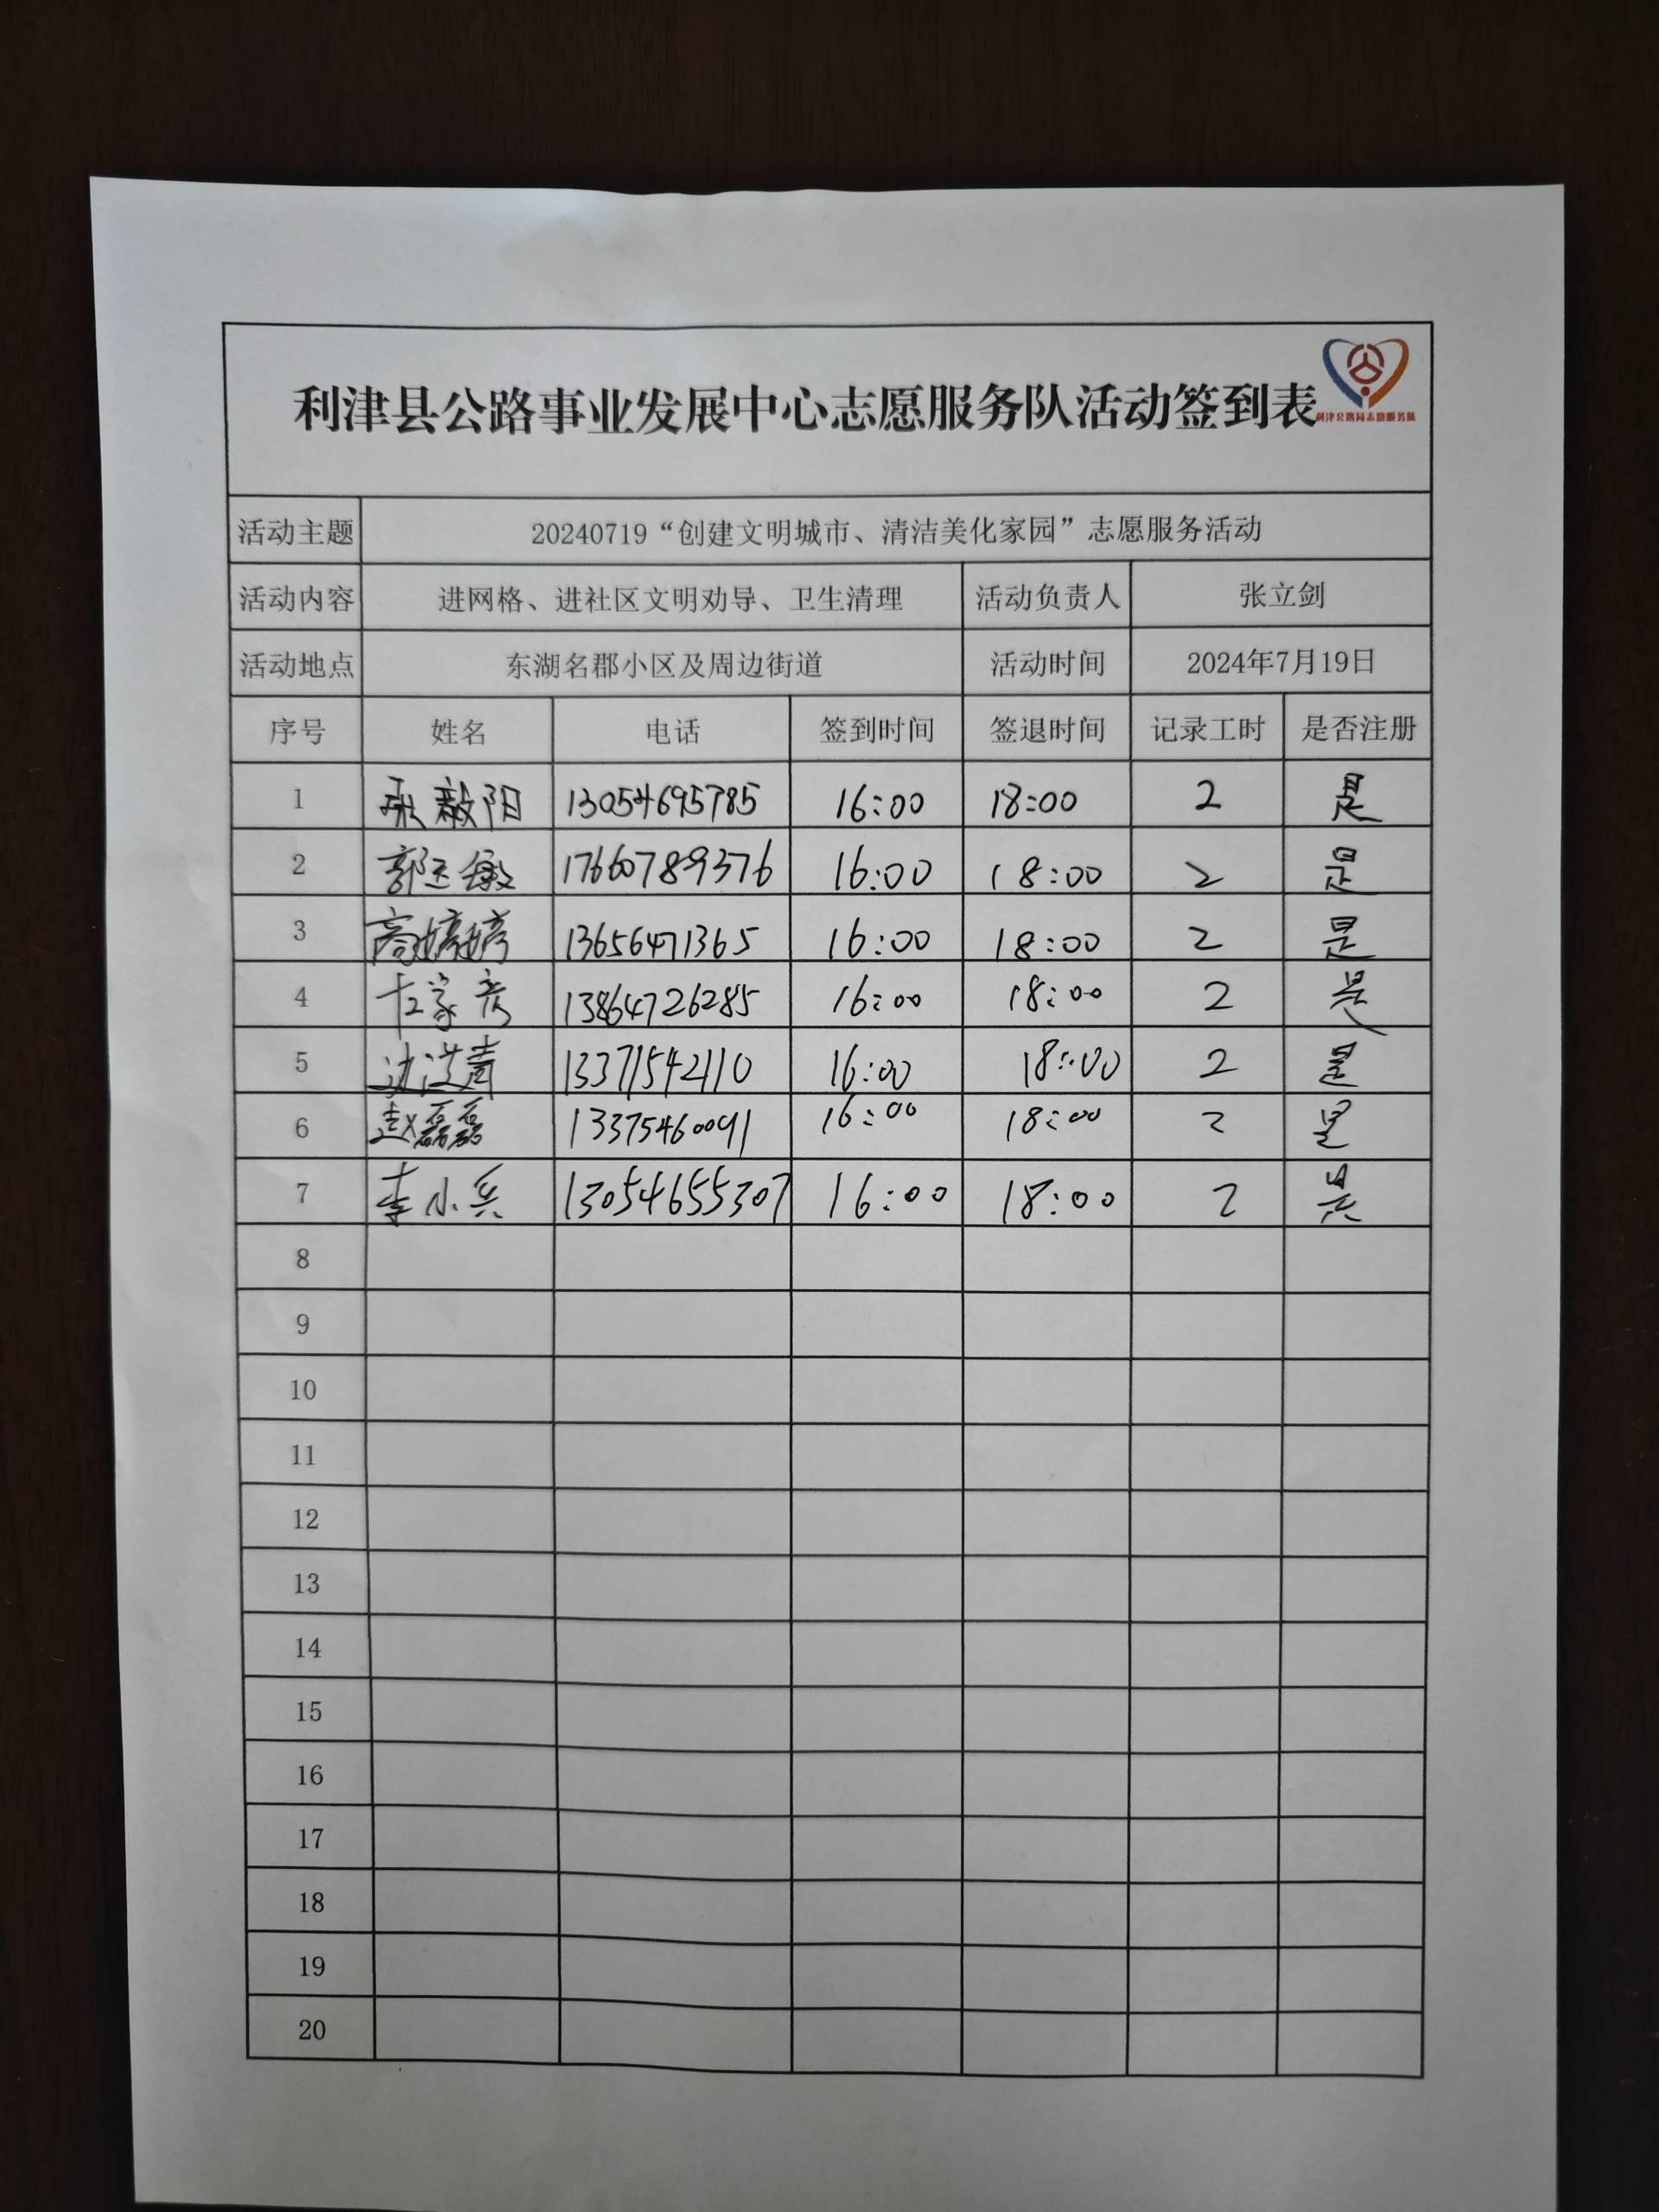 利津县公路事业发展中心志愿服务队活动签到表
利津公路同志愿服务队
活动主题 20240719“创建文明城市、清洁美化家园”志愿服务活动
活动内容 进网格、进社区文明劝导、卫生清理 活动负责人 张立剑
活动地点 东湖名郡小区及周边街道 活动时间 2024年7月19日
序号 姓名 电话 签到时间 签退时间 记录工时 是否注册
1 阳 13054695785 16:00 18:00 2 是
2 郭 敏 17660789376 16:00 18:00 2 是
3 高婷婷 13656471365 16:00 18:00 2 是
4 家 13864726285 16:00 18:00 2 是
5 13371542110 16:00 18:00 2 是
6 赵磊磊 13375460091 16:00 18:00 2 是
7 李小兵 13054655307 16:00 18:00 2 是
8
9
10
11
12
13
14
15
16
17
18
19
20